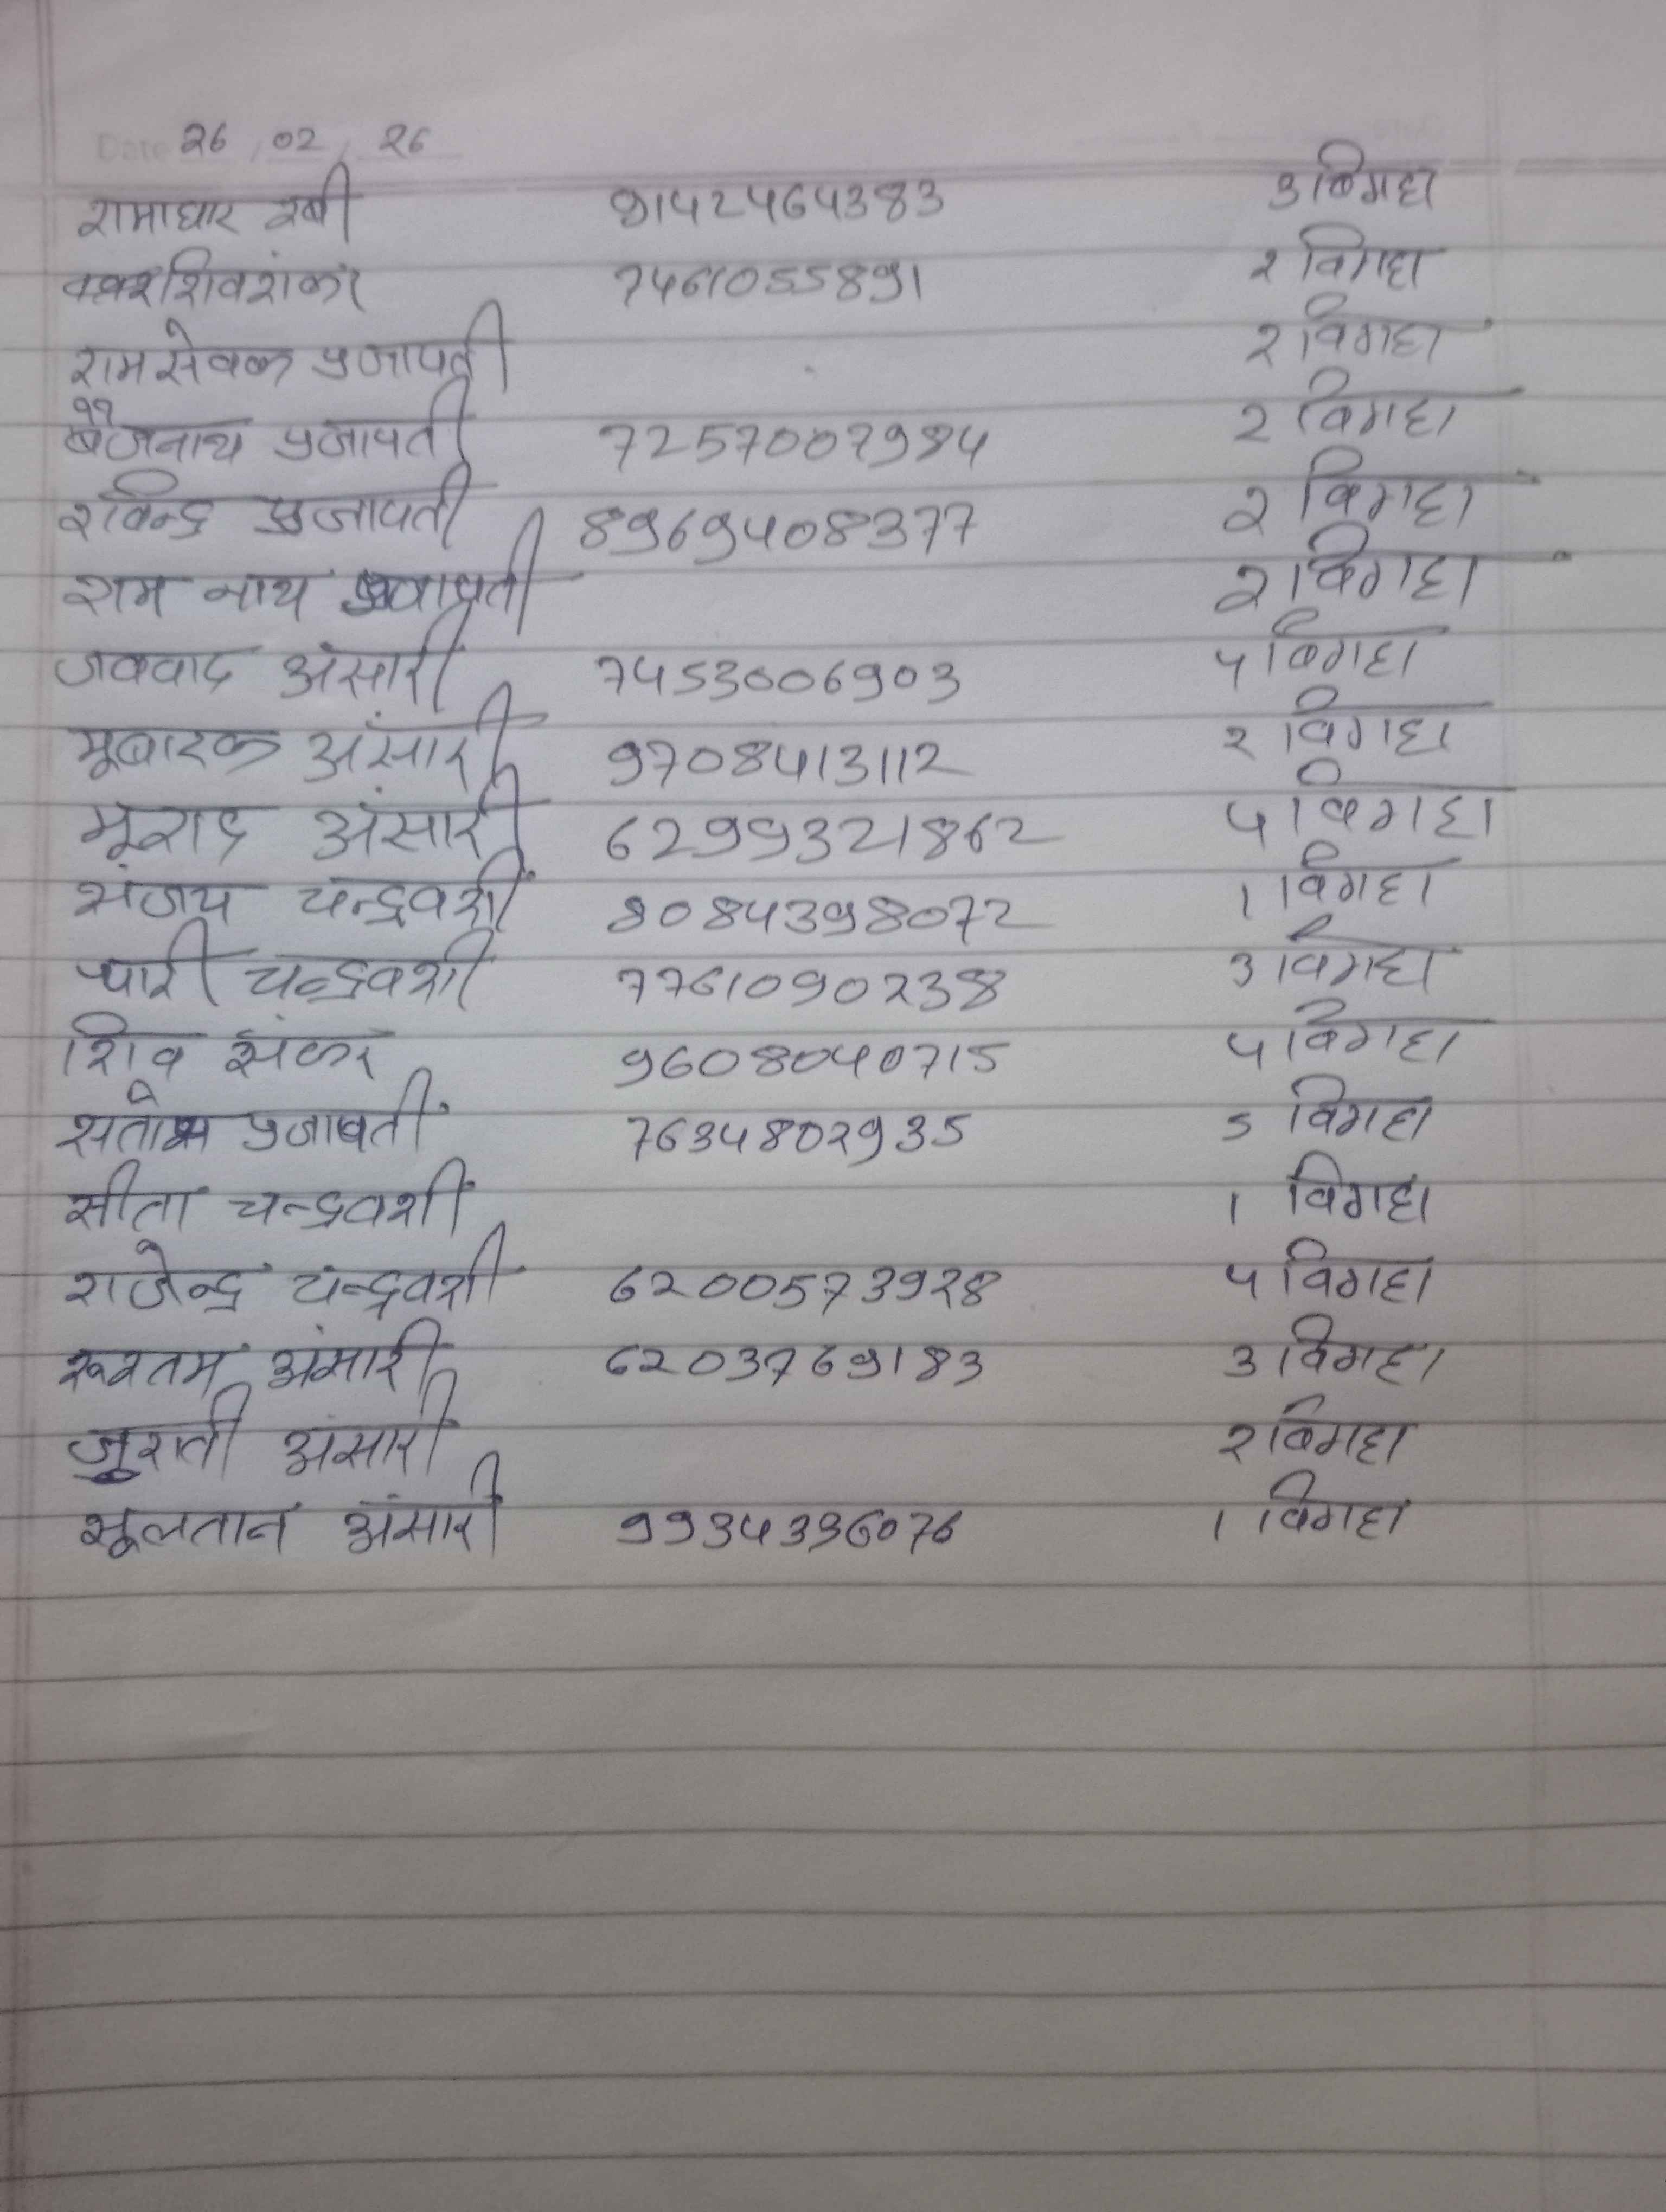 Date 26, 02, 26
रामाधार रबी 9142464383 3 बिगहा
शिवशंकर 7461055891 2 विगहा
रामसेवक प्रजापती 2 विगहा
बैजनाथ प्रजापती 7257007984 2 विगहा
रविन्द्र प्रजापती 8969408377 2 विगहा
राम नाथ 2 विगहा
जववाद अंसारी 7453006903 4 बिगहा
मूबारक अंसारी 9708413112 2 विगहा
मूराद अंसारी 6299321862 4 विगहा
संजय चन्द्रवशीं 8084398072 1 विगहा
प्यारी चन्द्रवशी 7761090238 3 विगहा
शिव संकर 9608040715 4 विगहा
प्रजापती 7634802935 5 विगहा
सीता चन्द्रवशीं 1 विगहा
राजेन्द्र चन्द्रवशी 6200573928 4 विगहा
रूस्तम अंसारी 6203769183 3 विगहा
जुराती अंसारी 2 बिगहा
सूलतान अंसारी 9934336076 1 विगहा